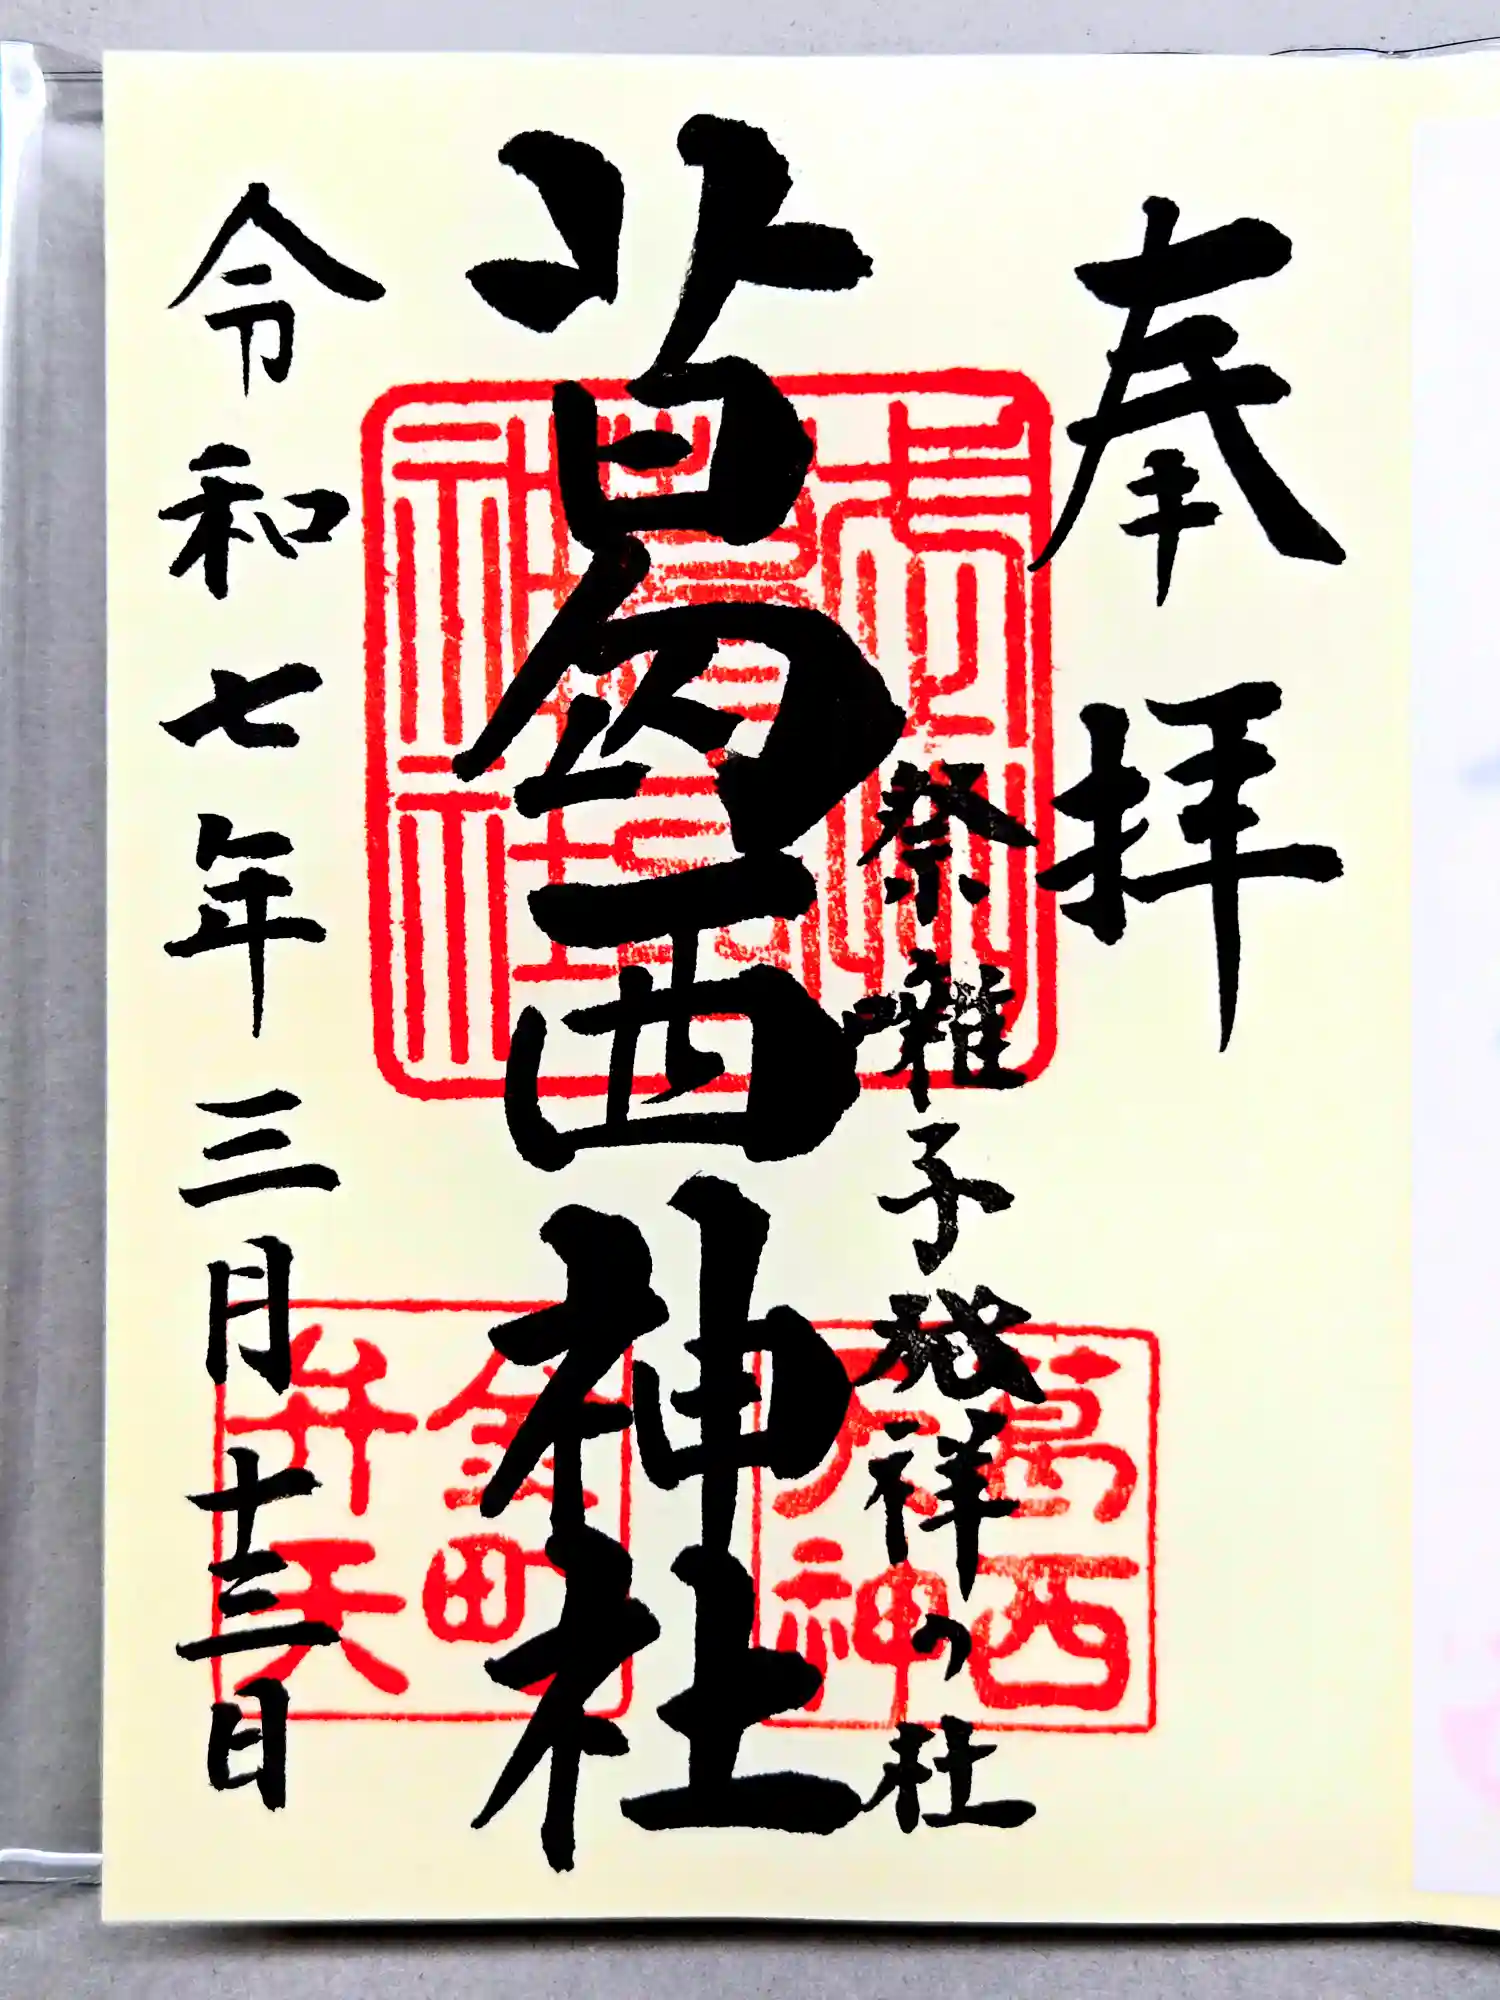 奉拝
祭囃子発祥の社
葛西神社
令和七年三月十三日
葛西
大神
金町
弁天